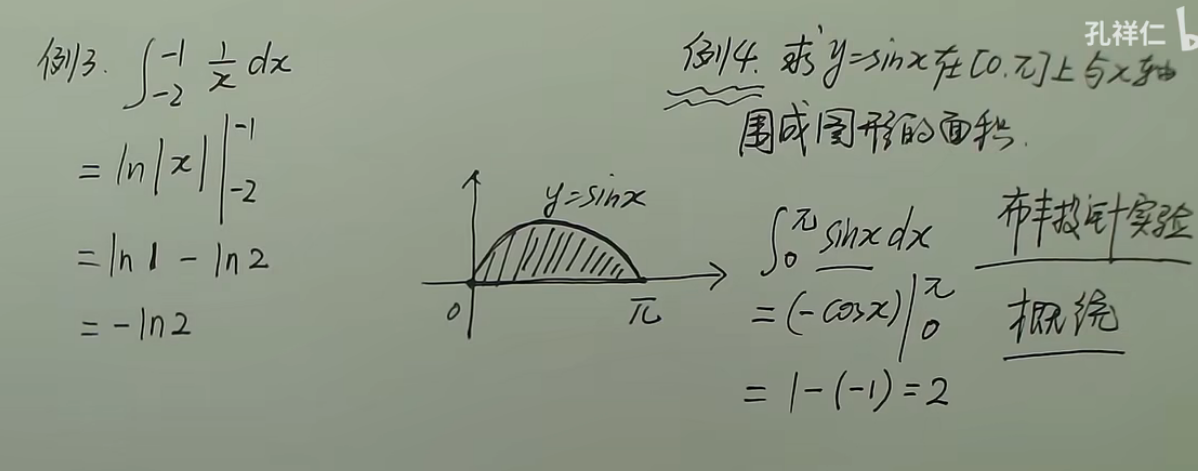 孔祥仁 b
例3. ∫_{-2}^{-1} 1/x dx
= ln|x| |_{-2}^{-1}
= ln1 - ln2
= -ln2
例4. 求y=sinx在[0.π]上与x轴
围成图形的面积.
y=sinx
0
π
∫_0^π sinx dx
= (-cosx)|_0^π
= 1-(-1)=2
布丰投针实验
概统